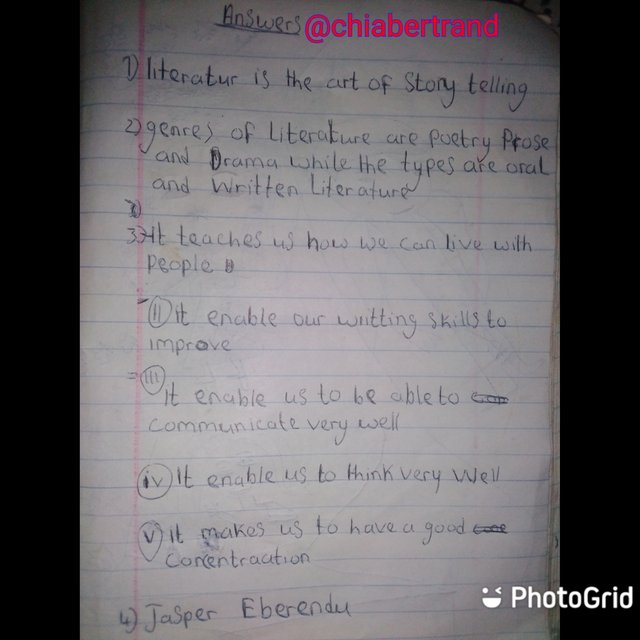 Answers @chiabertrand
1) literatur is the art of story telling
2) genres of literature are poetry Prose
and Drama while the types are oral
and written Literature
3)
3) It teaches us how we can live with
people
ii it enable our writting skills to
improve
iii
it enable us to be able to
communicate very well
iv It enable us to think very well
v it makes us to have a good
concentraction
4) Jasper Eberendu
PhotoGrid